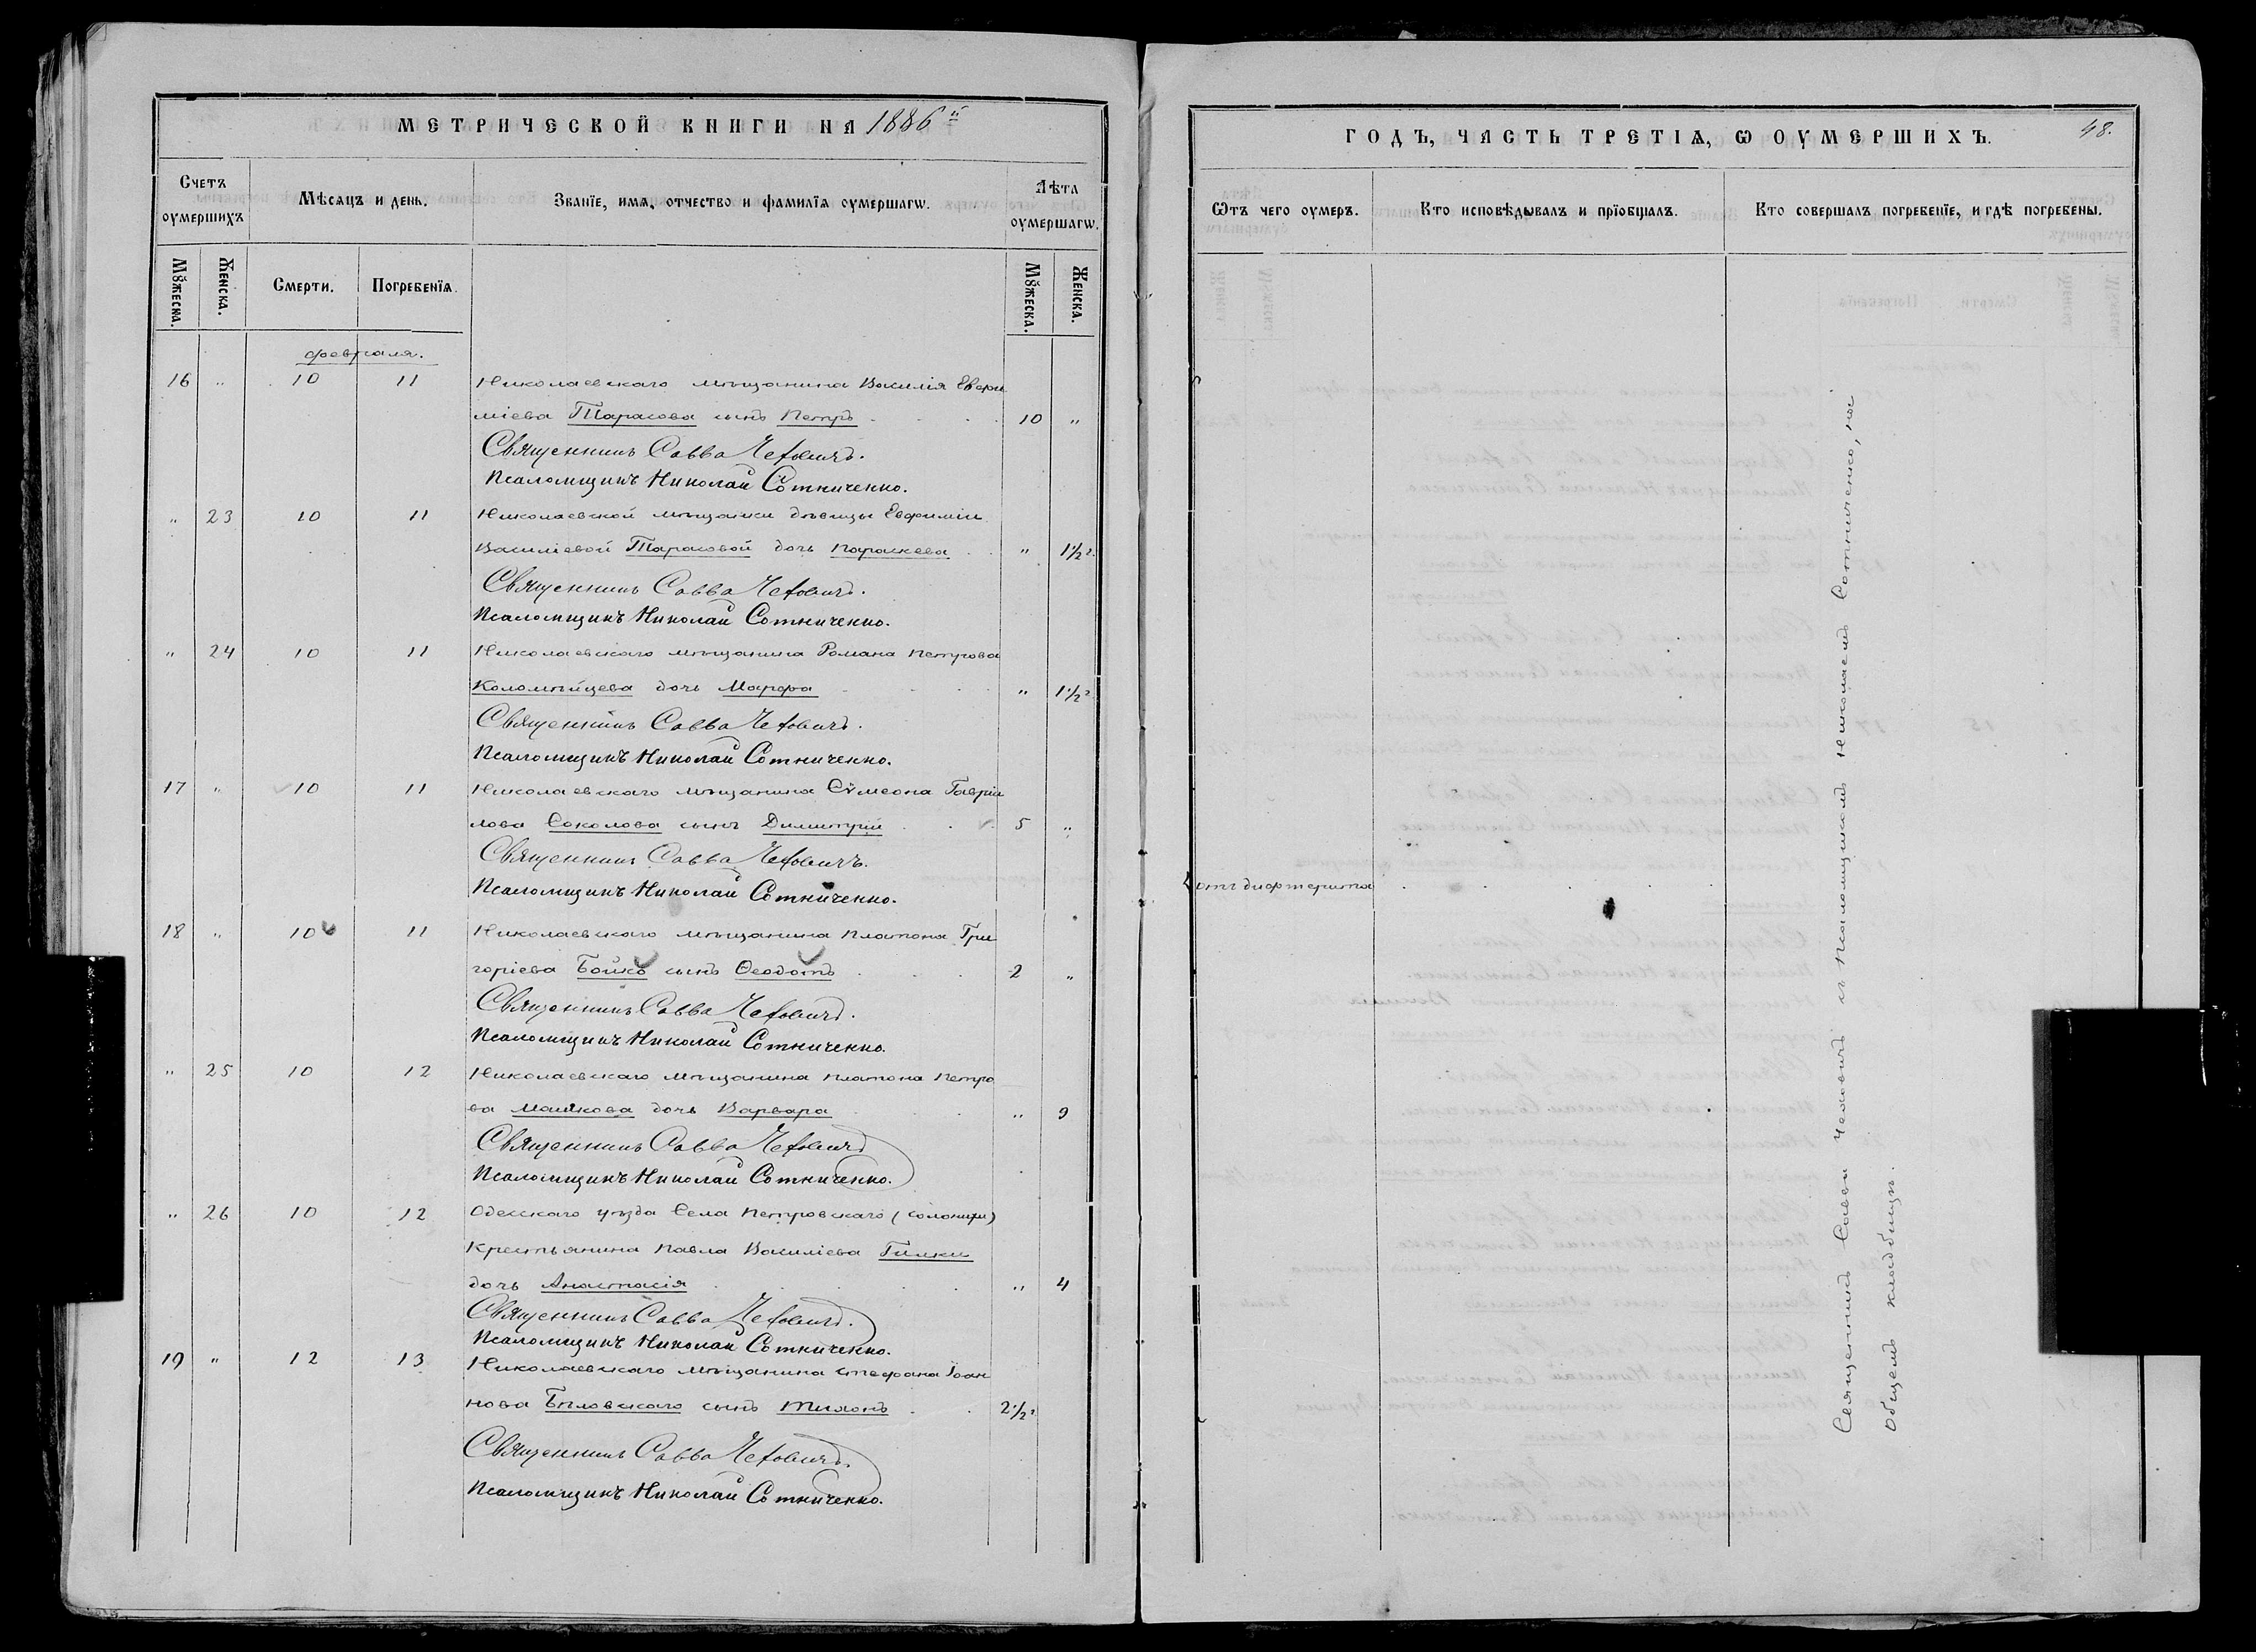 МЕТРИЧЕСКОЙ КНИГИ НА 1886й
Счетъ оумершихъ
Мѣсяцъ и день.
Званїе, имя, отчество и фамилїя оумершагѡ.
Лѣта оумершагѡ.
Мꙋжеска.
Женска.
Смерти.
Погребенїя.
Мꙋжеска.
Женска.
февраля.
16 " 10 11 Николаевскаго мѣщанина Василія Евфи
міева Тарасова сынъ Петръ 10 "
Священникъ Савва Чехович.
Псаломщикъ Николай Сотниченко.
" 23 10 11 Николаевской мѣщанки дѣвицы Евфиміи
Василіевой Тарасовой дочь Параскева " 1½ г.
Священникъ Савва Чехович.
Псаломщикъ Николай Сотниченко.
" 24 10 11 Николаевскаго мѣщанина Романа Петрова
Коломійцева дочь Марфа " 1½ г
Священникъ Савва Чехович.
Псаломщикъ Николай Сотниченко.
17 " 10 11 Николаевскаго мѣщанина Сѵмеона Гаврiи
лова Соколова сынъ Димитрій 5 "
Священникъ Савва Чеховичъ.
Псаломщикъ Николай Сотниченко.
18 " 10 11 Николаевскаго мѣщанина Платона Гри
горіева Бойко сынъ Ѳеодотъ 2 "
Священникъ Савва Чехович.
Псаломщикъ Николай Сотниченко.
" 25 10 12 Николаевскаго мѣщанина Платона Петро
ва Машкова дочь Варвара " 9
Священникъ Савва Чехович
Псаломщикъ Николай Сотниченко.
" 26 10 12 Одесскаго уѣзда Села Петровскаго (Солонихи)
Крестьянина Павла Василіева Гилки
дочь Анастасія " 4
Священникъ Савва Чехович.
Псаломщикъ Николай Сотниченко.
19 " 12 13 Николаевскаго мѣщанина Стефана Іоан
нова Бѣловскаго сынъ Тихонъ 2½ г
Священникъ Савва Чехович.
Псаломщикъ Николай Сотниченко.
ГОДЪ, ЧАСТЬ ТРЕТІѦ, Ѡ ОУМЕРШИХЪ.
48.
Ѿтъ чего оумеръ.
Кто исповѣдывалъ и прїобщалъ.
Кто совершалъ погребенїе, и гдѣ погребены.
отъ дифтерита
Священникъ Савва Чеховичъ съ Псаломщикомъ Николаемъ Сотниченко, на
Общемъ кладбищѣ.